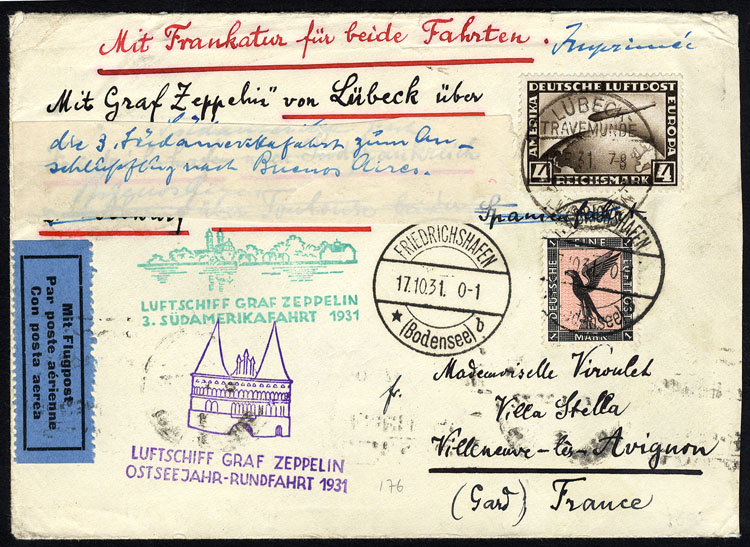 Mit Frankatur für beide Fahrten. Imprimée
Mit Graf Zeppelin" von Lübeck über
die 3. Südamerikafahrt zum An-
schlußflug nach Buenos Aires.
DEUTSCHE LUFTPOST
AMERIKA
EUROPA
4 REICHSMARK 4
LÜBECK-
TRAVEMÜNDE
5.31 7-8
Spanienfahrt
FRIEDRICHSHAFEN
17.10.31. 0-1
★ (Bodensee) d
FRIEDRICHSHAFEN
(Bodensee)
1 EINE 1
DEUTSCHE
LUFTPOST
1 MARK 1
LUFTSCHIFF GRAF ZEPPELIN
3. SÜDAMERIKAFAHRT 1931
Mit Flugpost
Par poste aérienne
Con posta aerea
LUFTSCHIFF GRAF ZEPPELIN
OSTSEEJAHR-RUNDFAHRT 1931
176
fr. Mademoiselle Viroulet
Villa Stella
Villeneuve-lès-Avignon
(Gard) France